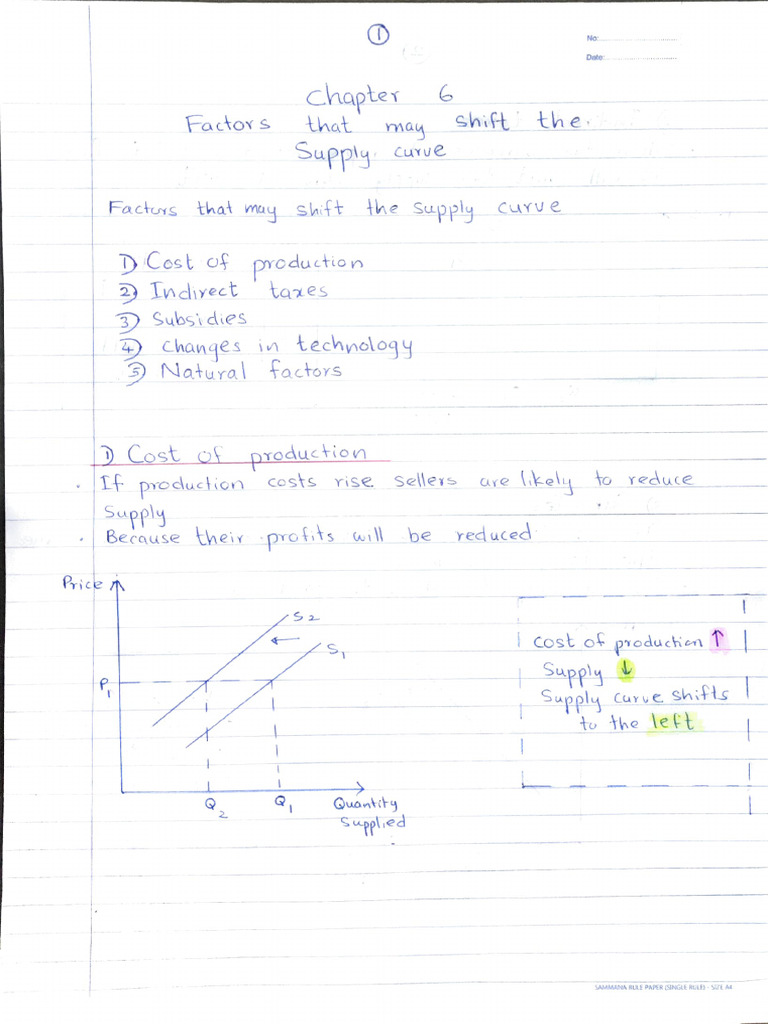 1
No:
Date:
Chapter 6
Factors that may shift the
Supply curve
Factors that may shift the supply curve
1) Cost of production
2) Indirect taxes
3) Subsidies
4) changes in technology
5) Natural factors
1) Cost of production
. If production costs rise sellers are likely to reduce
Supply
. Because their profits will be reduced
Price
S2
S1
P1
Q2 Q1 Quantity
Supplied
cost of production ↑
Supply ↓
Supply curve shifts
to the left
SAMMANA RULE PAPER (SINGLE RULE) - SIZE A4